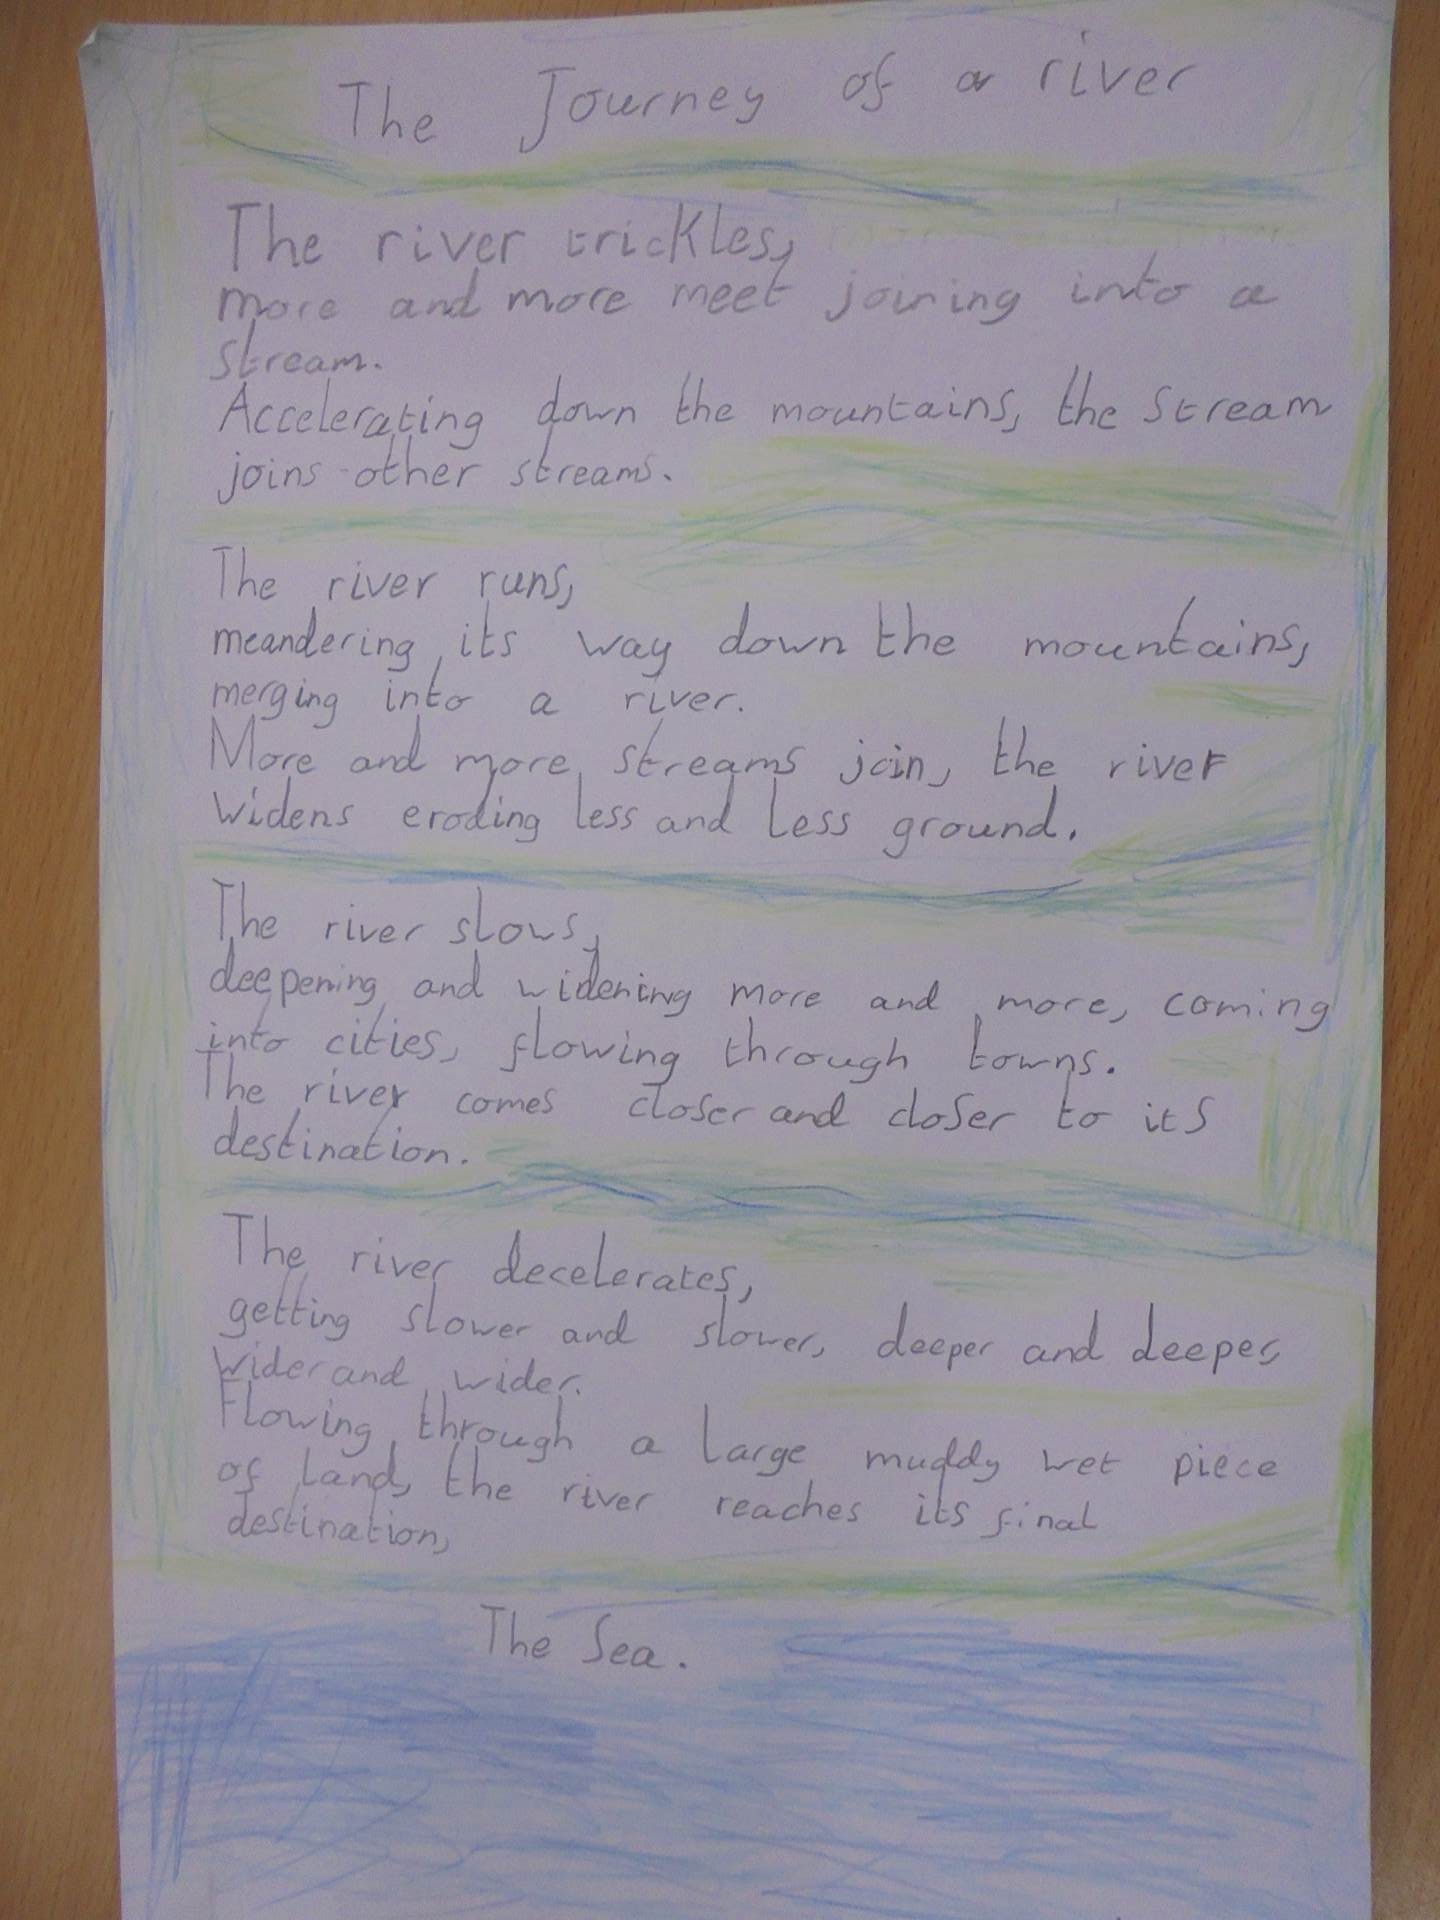 The Journey of a river
The river trickles,
more and more meet joining into a
stream.
Accelerating down the mountains, the stream
joins other streams.
The river runs,
meandering its way down the mountains,
merging into a river.
More and more streams join, the river
widens eroding less and less ground.
The river slows,
deepening and widening more and more, coming
into cities, flowing through towns.
The river comes closer and closer to its
destination.
The river decelerates,
getting slower and slower, deeper and deeper,
wider and wider.
Flowing through a large muddy wet piece
of land, the river reaches its final
destination,
The Sea.